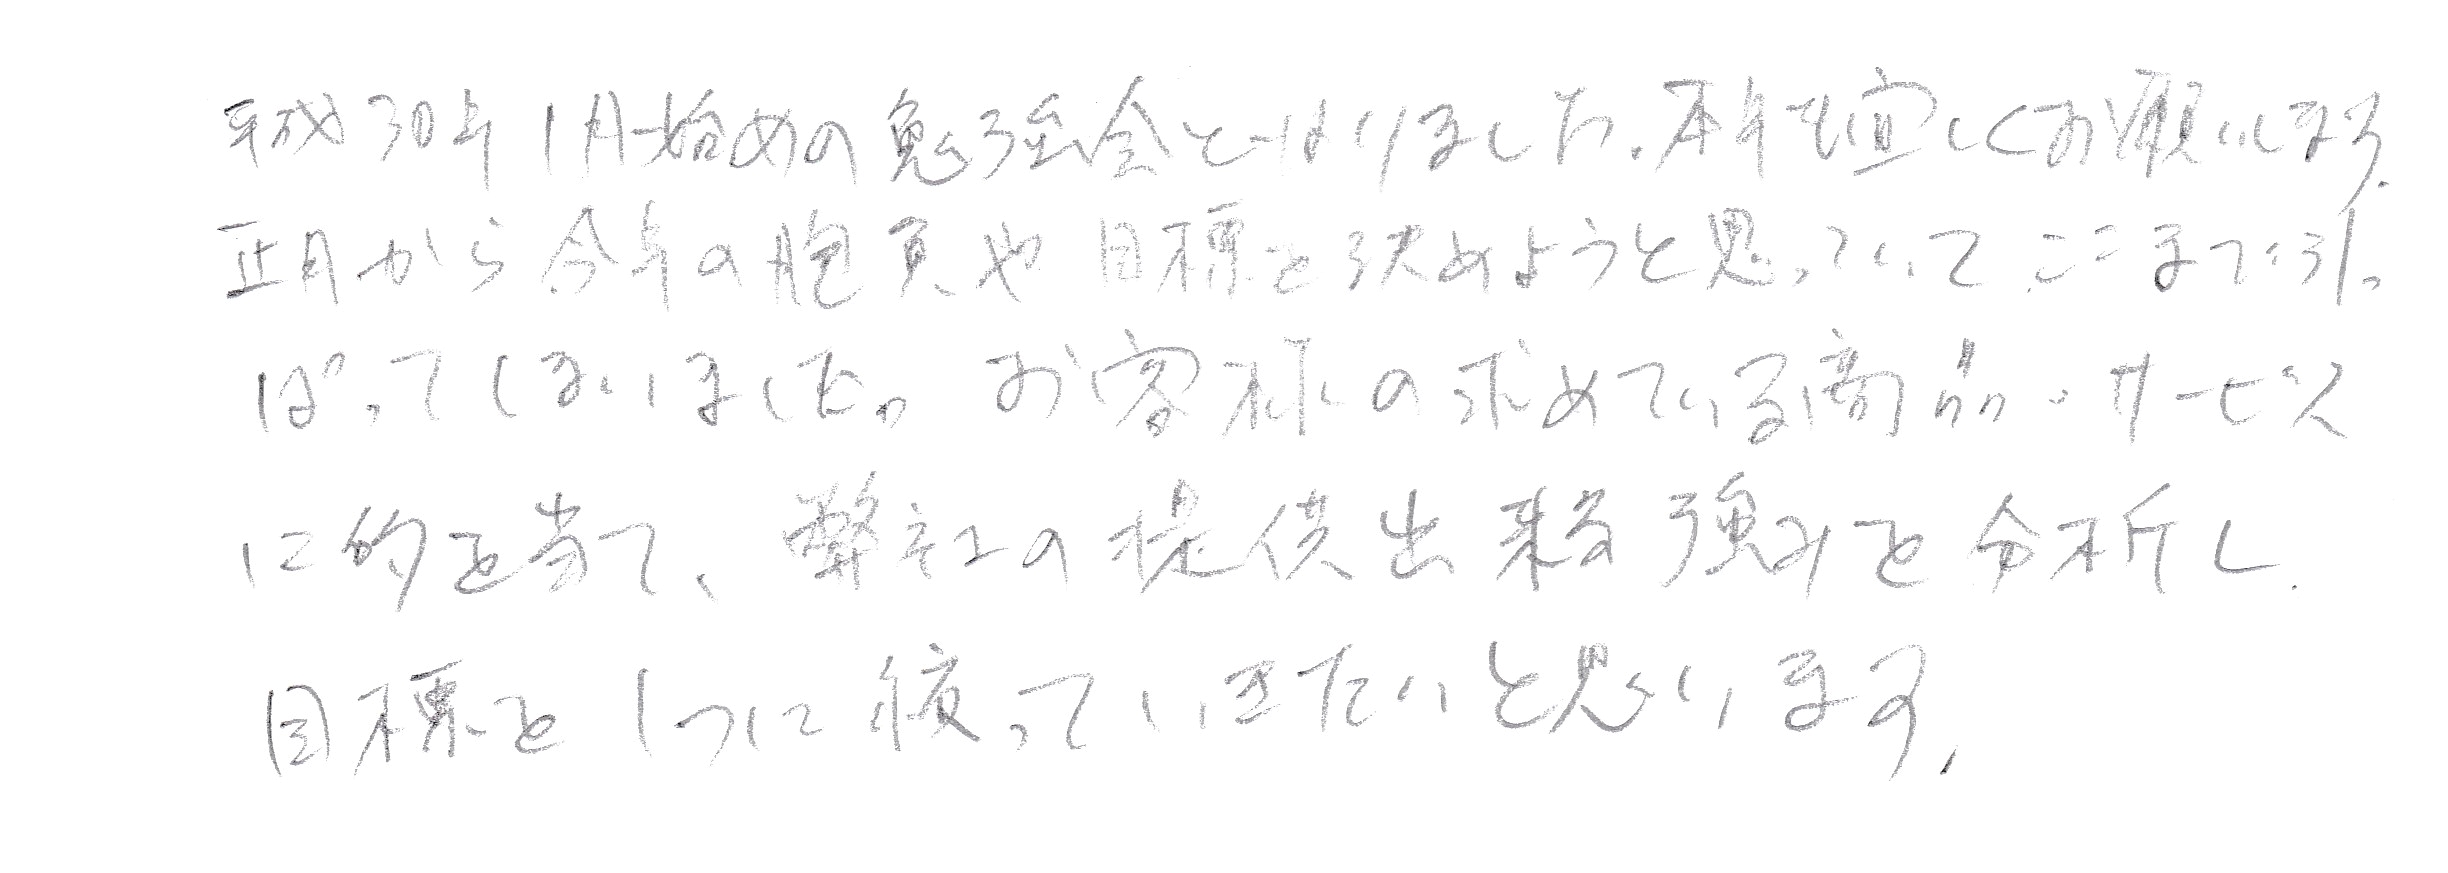 平成30年1月始めの勉強会となりました。本年も宜しくお願いします。
正月から今年の抱負や目標を決めようと思っていて、ここまで引っ
ぱってしまいました。お客様の求めている商品・サービス
に的を当て、弊社の提供出来る強みを分析し、
目標を1つに絞っていきたいと思います。